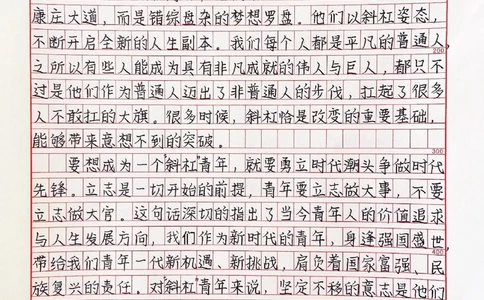 康庄大道，而是错综盘杂的梦想罗盘。他们以斜杠姿态，
不断开启全新的人生副本。我们每个人都是平凡的普通人，
200
之所以有些人能成为具有非凡成就的伟人与巨人，都只不
过是他们作为普通人迈出了非普通人的步伐，扛起了很多
人不敢扛的大旗。很多时候，斜杠恰是改变的重要基础，
能够带来意想不到的突破。
300
要想成为一个“斜杠”青年，就要勇立时代潮头争做时代
先锋。立志是一切开始的前提，青年要立志做大事，不要
立志做大官。这句话深切的指出了当今青年人的价值追求
与人生发展方向，我们作为新时代的青年，身逢强国盛世，
400
带给我们青年一代新机遇、新挑战，肩负着国家富强、民
族复兴的责任。对“斜杠”青年来说，坚定不移的意志是他们